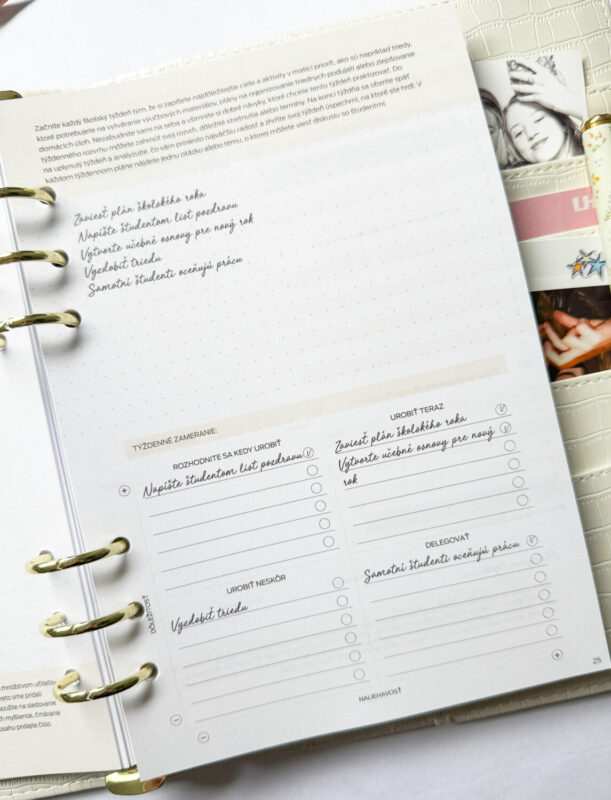 Začnite každý školský týždeň tým, že si zapíšete najdôležitejšie ciele a aktivity v matici priorít, ako sú napríklad triedy,
ktoré potrebujete na vytváranie výučbových materiálov, plány na organizovanie triednych podujatí alebo zlepšovanie
domácich úloh. Nezabudnite sami na seba a všímnite si dobré návyky, ktoré chcete tento týždeň praktizovať. Do
týždenného rozvrhu môžete zahrnúť svoj rozvrh, dôležité stretnutia alebo termíny. Na konci týždňa sa obzrite späť
na uplynulý týždeň a analyzujte, čo vám prinieslo najväčšiu radosť a zhrňte svoj týždeň úspechmi, na ktoré ste hrdí. V
každom týždennom pláne nájdete jednu otázku alebo tému, o ktorej môžete viesť diskusiu so študentmi.
Zaviesť plán školského roka
Napíšte študentom list pozdravu
Vytvorte učebné osnovy pre nový rok
Vyzdobiť triedu
Samotní študenti oceňujú prácu
TÝŽDENNÉ ZAMERANIE:
ROZHODNITE SA KEDY UROBIŤ
Napíšte študentom list pozdravu
UROBIŤ TERAZ
Zaviesť plán školského roka
Vytvorte učebné osnovy pre nový
rok
UROBIŤ NESKÔR
Vyzdobiť triedu
DELEGOVAŤ
Samotní študenti oceňujú prácu
DÔLEŽITOSŤ
NALIEHAVOSŤ
25
množstvom učiteľov
reto sme pridali
použite na sledovanie
ch myšlienok, čmáranie
obsahu pridajte číslo